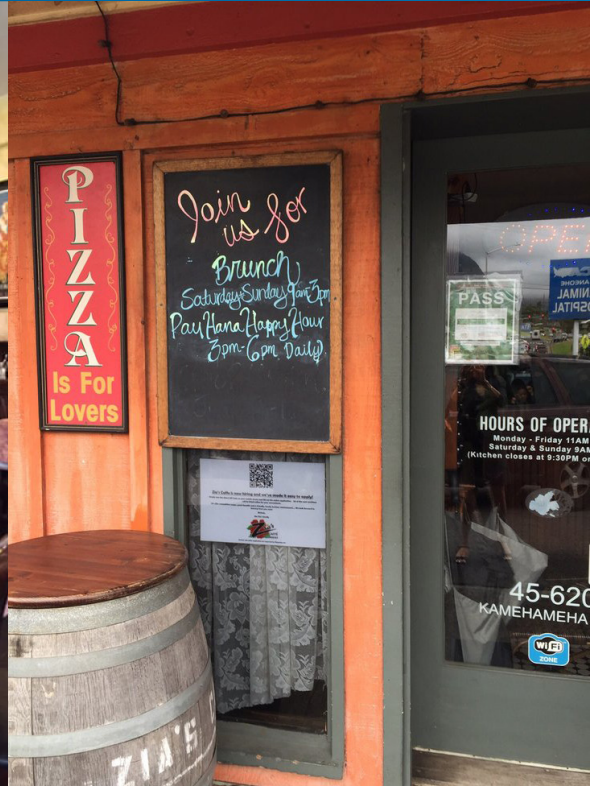 PIZZA
Is For
Lovers
Join
us for
Brunch
Saturday+Sunday 9am-3pm
Pau Hana Happy Hour
3pm-6pm Daily!
ZIA'S
OPE
PASS
KANEOHE
ANIMAL
HOSPITAL
HOURS OF OPERA
Monday - Friday 11AM
Saturday & Sunday 9AM
(Kitchen closes at 9:30PM on
45-620
KAMEHAMEHA
WiFi
ZONE